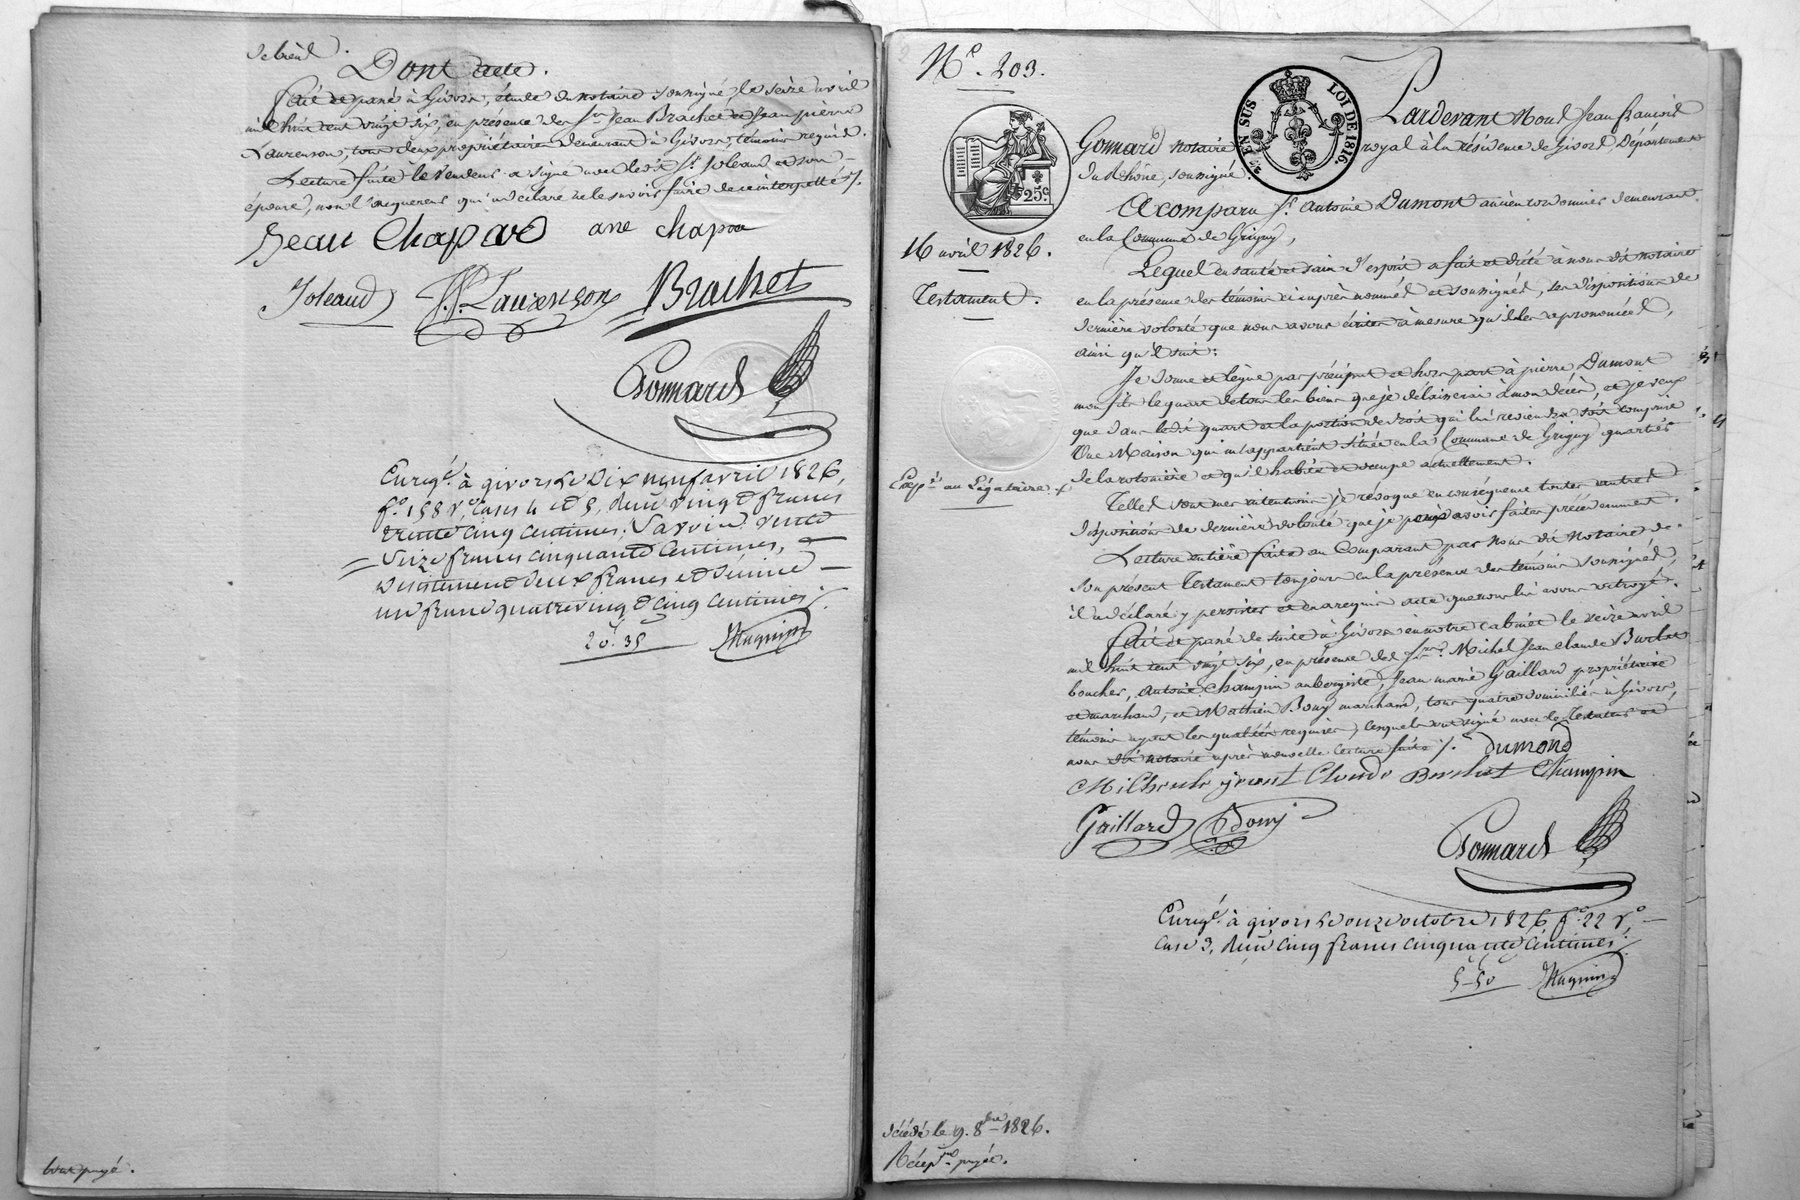 de biend.
Dont acte.
Fait et passé à Givors, étude du notaire soussigné, le seize avril
mil huit cent vingt six, en présence des Srs Jean Brachet et Jean pierre
Laurenson, tous deux propriétaires demeurant à Givors, témoins requis.
Lecture faite le vendeur a signé avec ledit Sr Joleaud et son
épouse, non l'acquereur qui a déclaré ne le savoir faire de ce interpellé ./.
Jean Chapard ane chapon
Joleaud JP. Laurenson Brachet
Gonnard
Enregé. à givors le Dix neuf avril 1826,
fo. 158 vo, cases 4 et 5, Reçu vingt francs
trente cinq centimes; Savoir vente
Seize francs cinquante centimes,
Désistement deux francs et décime
un franc quatrevingt cinq centimes ./.
20f. 35 Magnin
tout payé.
No. 203.
EN SUS LOI DE 1816.
25c
16 avril 1826.
Testament.
Expé. au Légataire
Pardevant Nous Jean françois
Gonnard notaire royal à la résidence de Givors, Département
du Rhône, soussigné.
A comparu Sr. Antoine Dumont ancien cordonnier demeurant
en la Commune de Grigny,
Lequel en santé et sain d'esprit a fait et dicté à nous dit notaire
en la présence des témoins ci après nommés et soussignés, ses dispositions de
dernière volonté que nous avons écrites à mesure qu'il les a prononcées,
ainsi qu'il suit:
Je donne et lègue par préciput et hors part à pierre Dumont
mon fils le quart de tous les biens que je délaisserai à mon décès, et je veux
que dans ledit quart et la portion de droit qui lui reviendra soit comprise
Une Maison qui m'appartient située en la Commune de Grigny quartier
de la rotonière et qu'il habite et occupe actuellement.
Telles sont mes intentions, je révoque en conséquence toutes autres
dispositions de dernière volonté que je puis avoir faites précédemment.
Lecture entière faite au Comparant par Nous dit Notaire de
son présent Testament toujours en la présence des témoins soussignés,
il a déclaré y persister et en a requis acte que nous lui avons octroyé.
Fait et passé de suite à Givors en notre cabinet le seize avril
mil huit cent vingt six, en présence des Srs. Michel Jean claude Burlat
boucher, Antoine Champin aubergiste, Jean marie Gaillard propriétaire
et marchand, et Mathieu Bony marchand, tous quatre domiciliés à Givors,
témoins ayant les qualités requises, lesquels ont signé avec le Testateur et
nous dit notaire après nouvelle lecture faite ./. dumond
Claude Burlat Champin
Gaillard Bony
Gonnard
Enregé. à givors le onze octobre 1826, fo. 22 Vo.
Case 3, Reçu cinq francs cinquante centimes ./.
5-50 Magnin
décédé le 9. 8bre 1826.
payée.